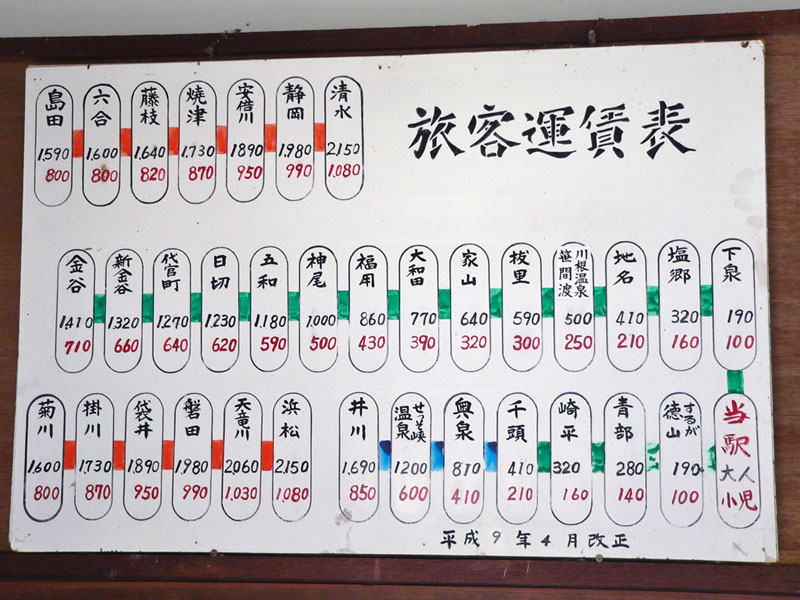 旅客運賃表
島田 1,590 800
六合 1,600 800
藤枝 1,640 820
焼津 1,730 870
安倍川 1890 950
静岡 1,980 990
清水 2,150 1,080
金谷 1,410 710
新金谷 1,320 660
代官町 1,270 640
日切 1,230 620
五和 1,180 590
神尾 1,000 500
福用 860 430
大和田 770 390
家山 640 320
抜里 590 300
川根温泉笹間渡 500 250
地名 410 210
塩郷 320 160
下泉 190 100
菊川 1600 800
掛川 1,730 870
袋井 1,890 950
磐田 1,980 990
天竜川 2,060 1,030
浜松 2,150 1,080
井川 1,690 850
せっそ峡温泉 1,200 600
奥泉 810 410
千頭 410 210
崎平 320 160
青部 280 140
するが徳山 190 100
当駅 大人 小児
平成9年4月改正